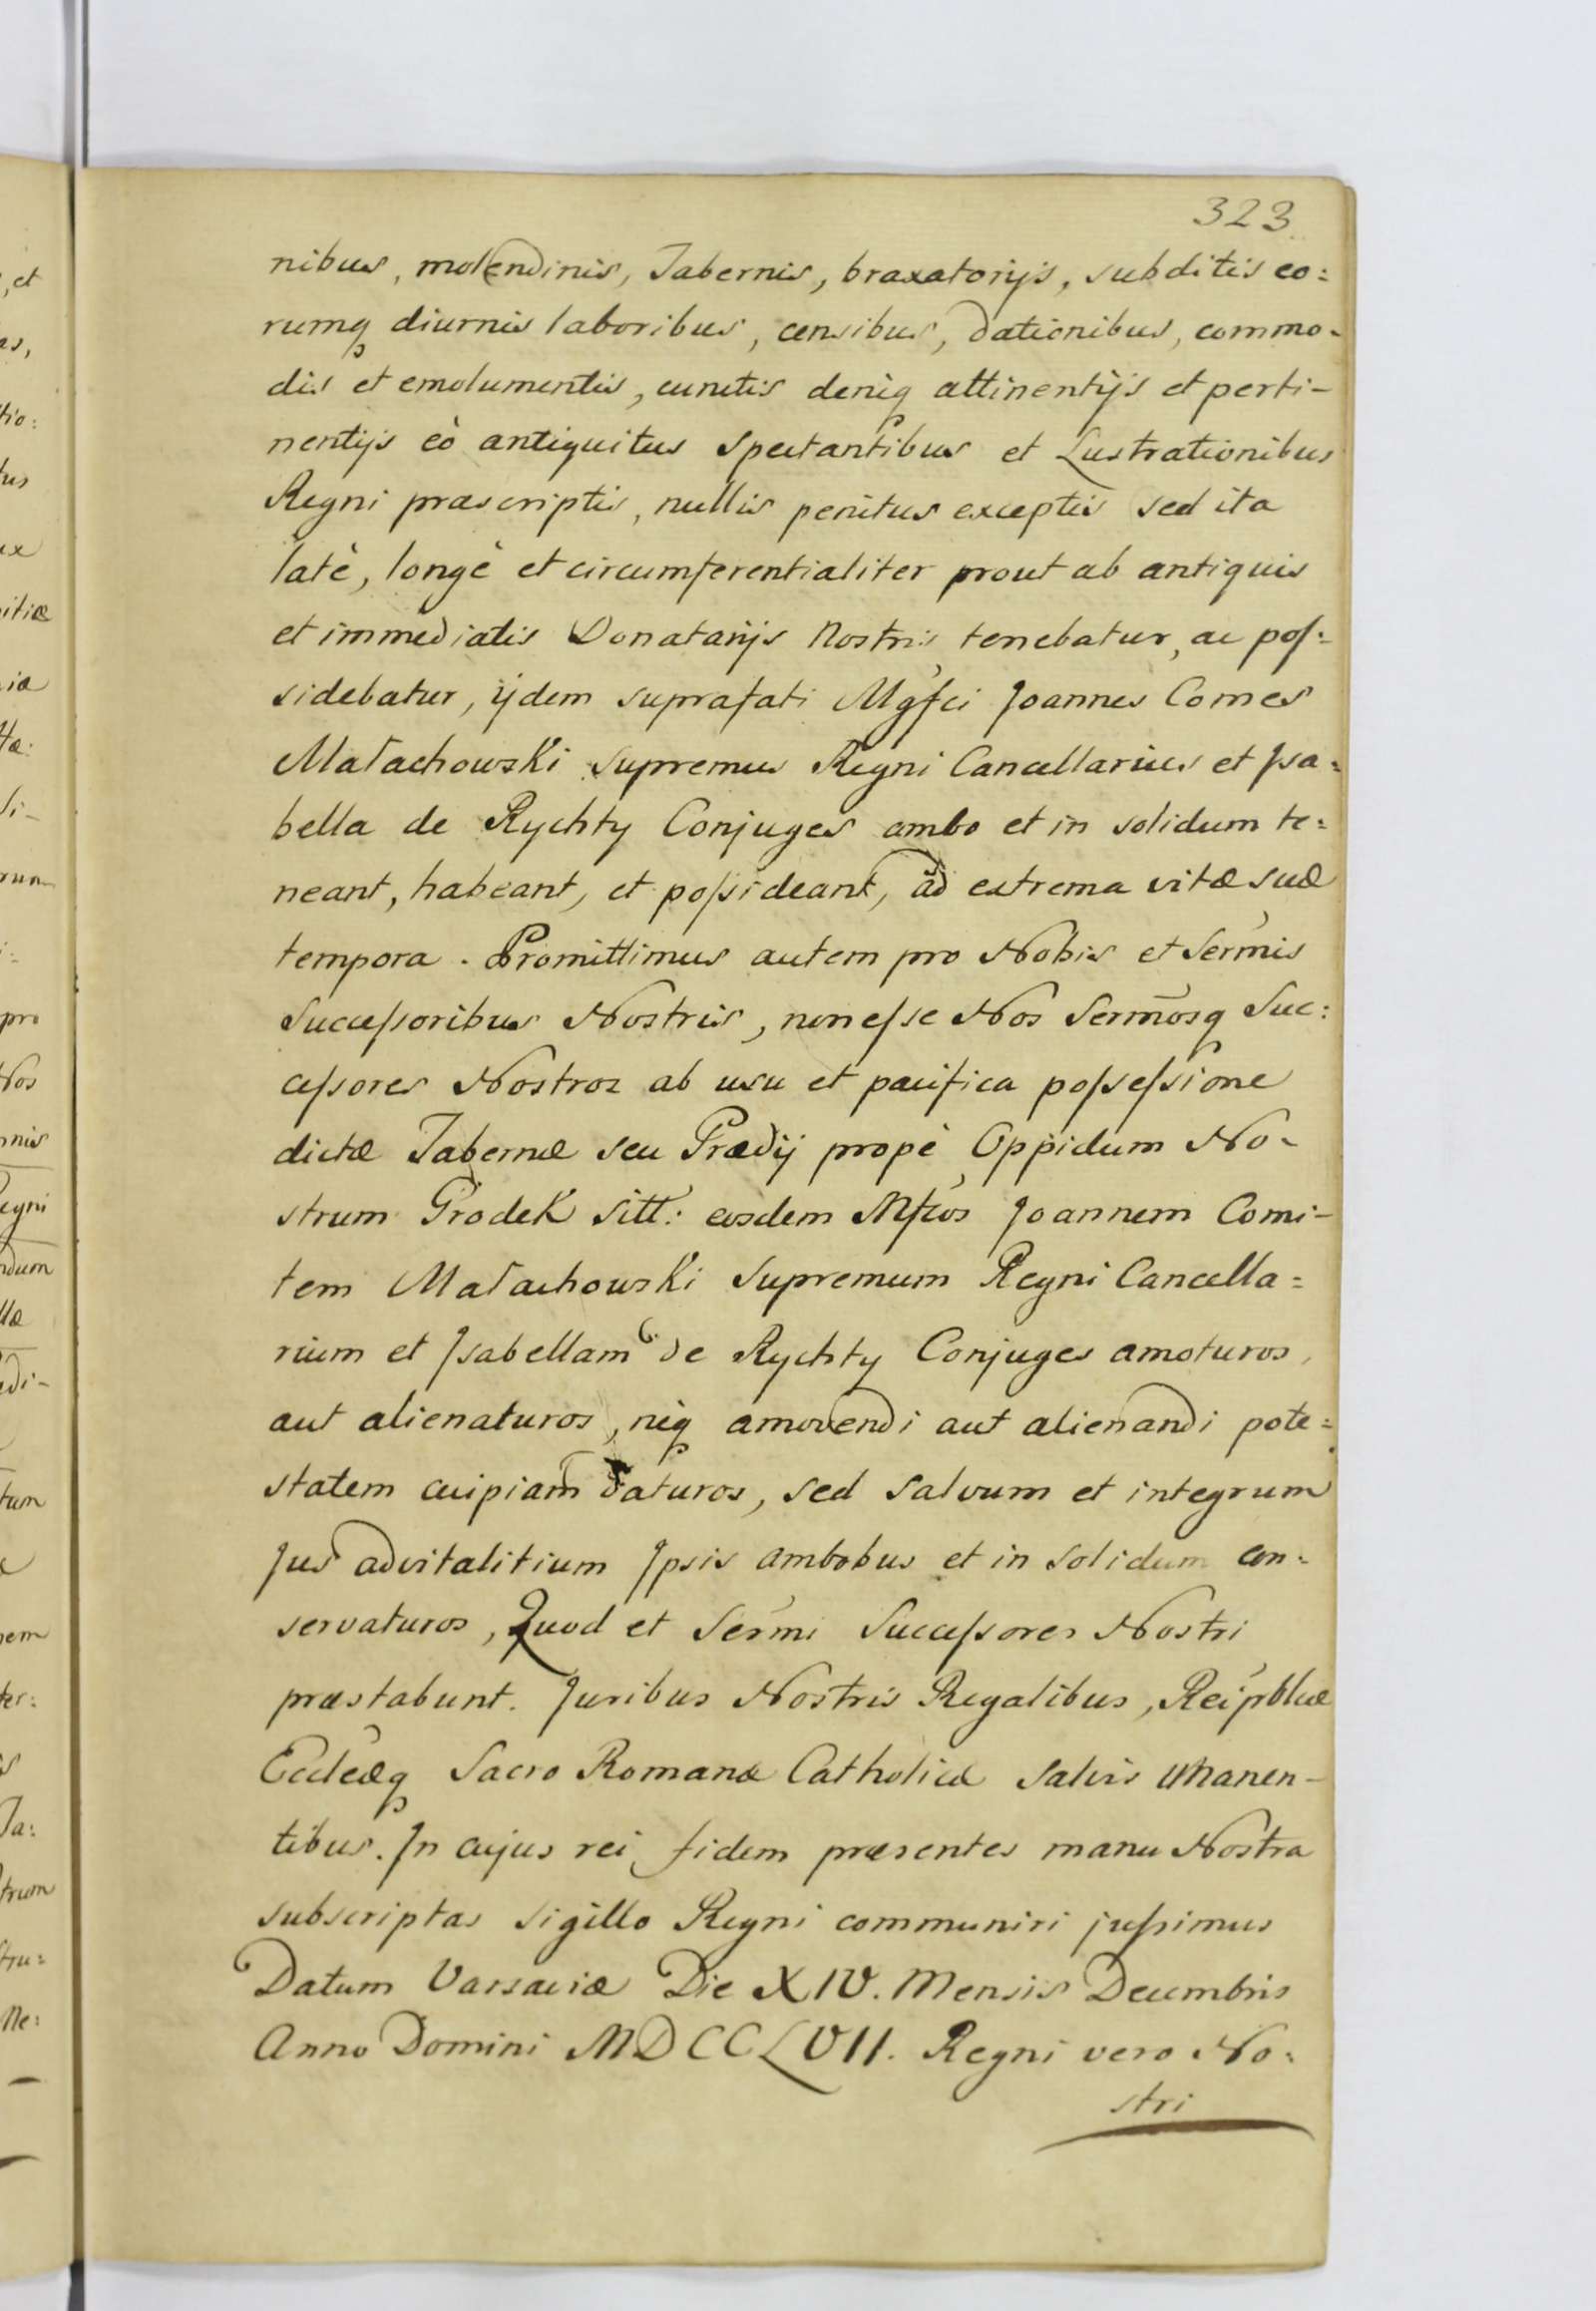 323
nibus, molendinis, Tabernis, braxatorijs, subditis eo:
rumq diurnis laboribus, censibus, dationibus, commo-
dis et emolumentis, cunctis deniq attinentijs et perti-
nentijs eò antiquitus spectantibus et Lustrationibus
Regni præscriptis, nullis penitus exceptis sed ita
latè, longè et circumferentialiter prout ab antiquis
et immediatis Donatarijs Nostris tenebatur, ac pos:
sidebatur, ijdem suprafati Mgfci Joannes Comes
Małachowski Supremus Regni Cancellarius et Jsa:
bella de Rychty Conjuges ambo et in solidum te:
neant, habeant, et possideant, ad extrema vitæ suæ
tempora. Promittimus autem pro Nobis et Sermis
Successoribus Nostris, non esse Nos Sermosq Suc:
cessores Nostros ab usu et pacifica possessione
dictæ Tabernæ seu Prædij propè Oppidum No-
strum Grodek sitt: eosdem Mfcos Joannem Comi-
tem Małachowski Supremum Regni Cancella:
rium et Jsabellam de Rychty Conjuges amoturos,
aut alienaturos, neq amovendi aut alienandi pote:
statem cuipiam daturos, sed salvum et integrum
Jus advitalitium Jpsis ambobus et in solidum con:
servaturos, Quod et Sermi Successores Nostri
præstabunt. Juribus Nostris Regalibus, Reipblicæ
Eccleæq Sacro Romanæ Catholicæ salvis manen-
tibus. Jn cujus rei fidem præsentes manu Nostra
subscriptas sigillo Regni communiri jussimus
Datum Varsaviæ Die XIV. Mensis Decembris
Anno Domini MDCCLVII. Regni vero No:
stri